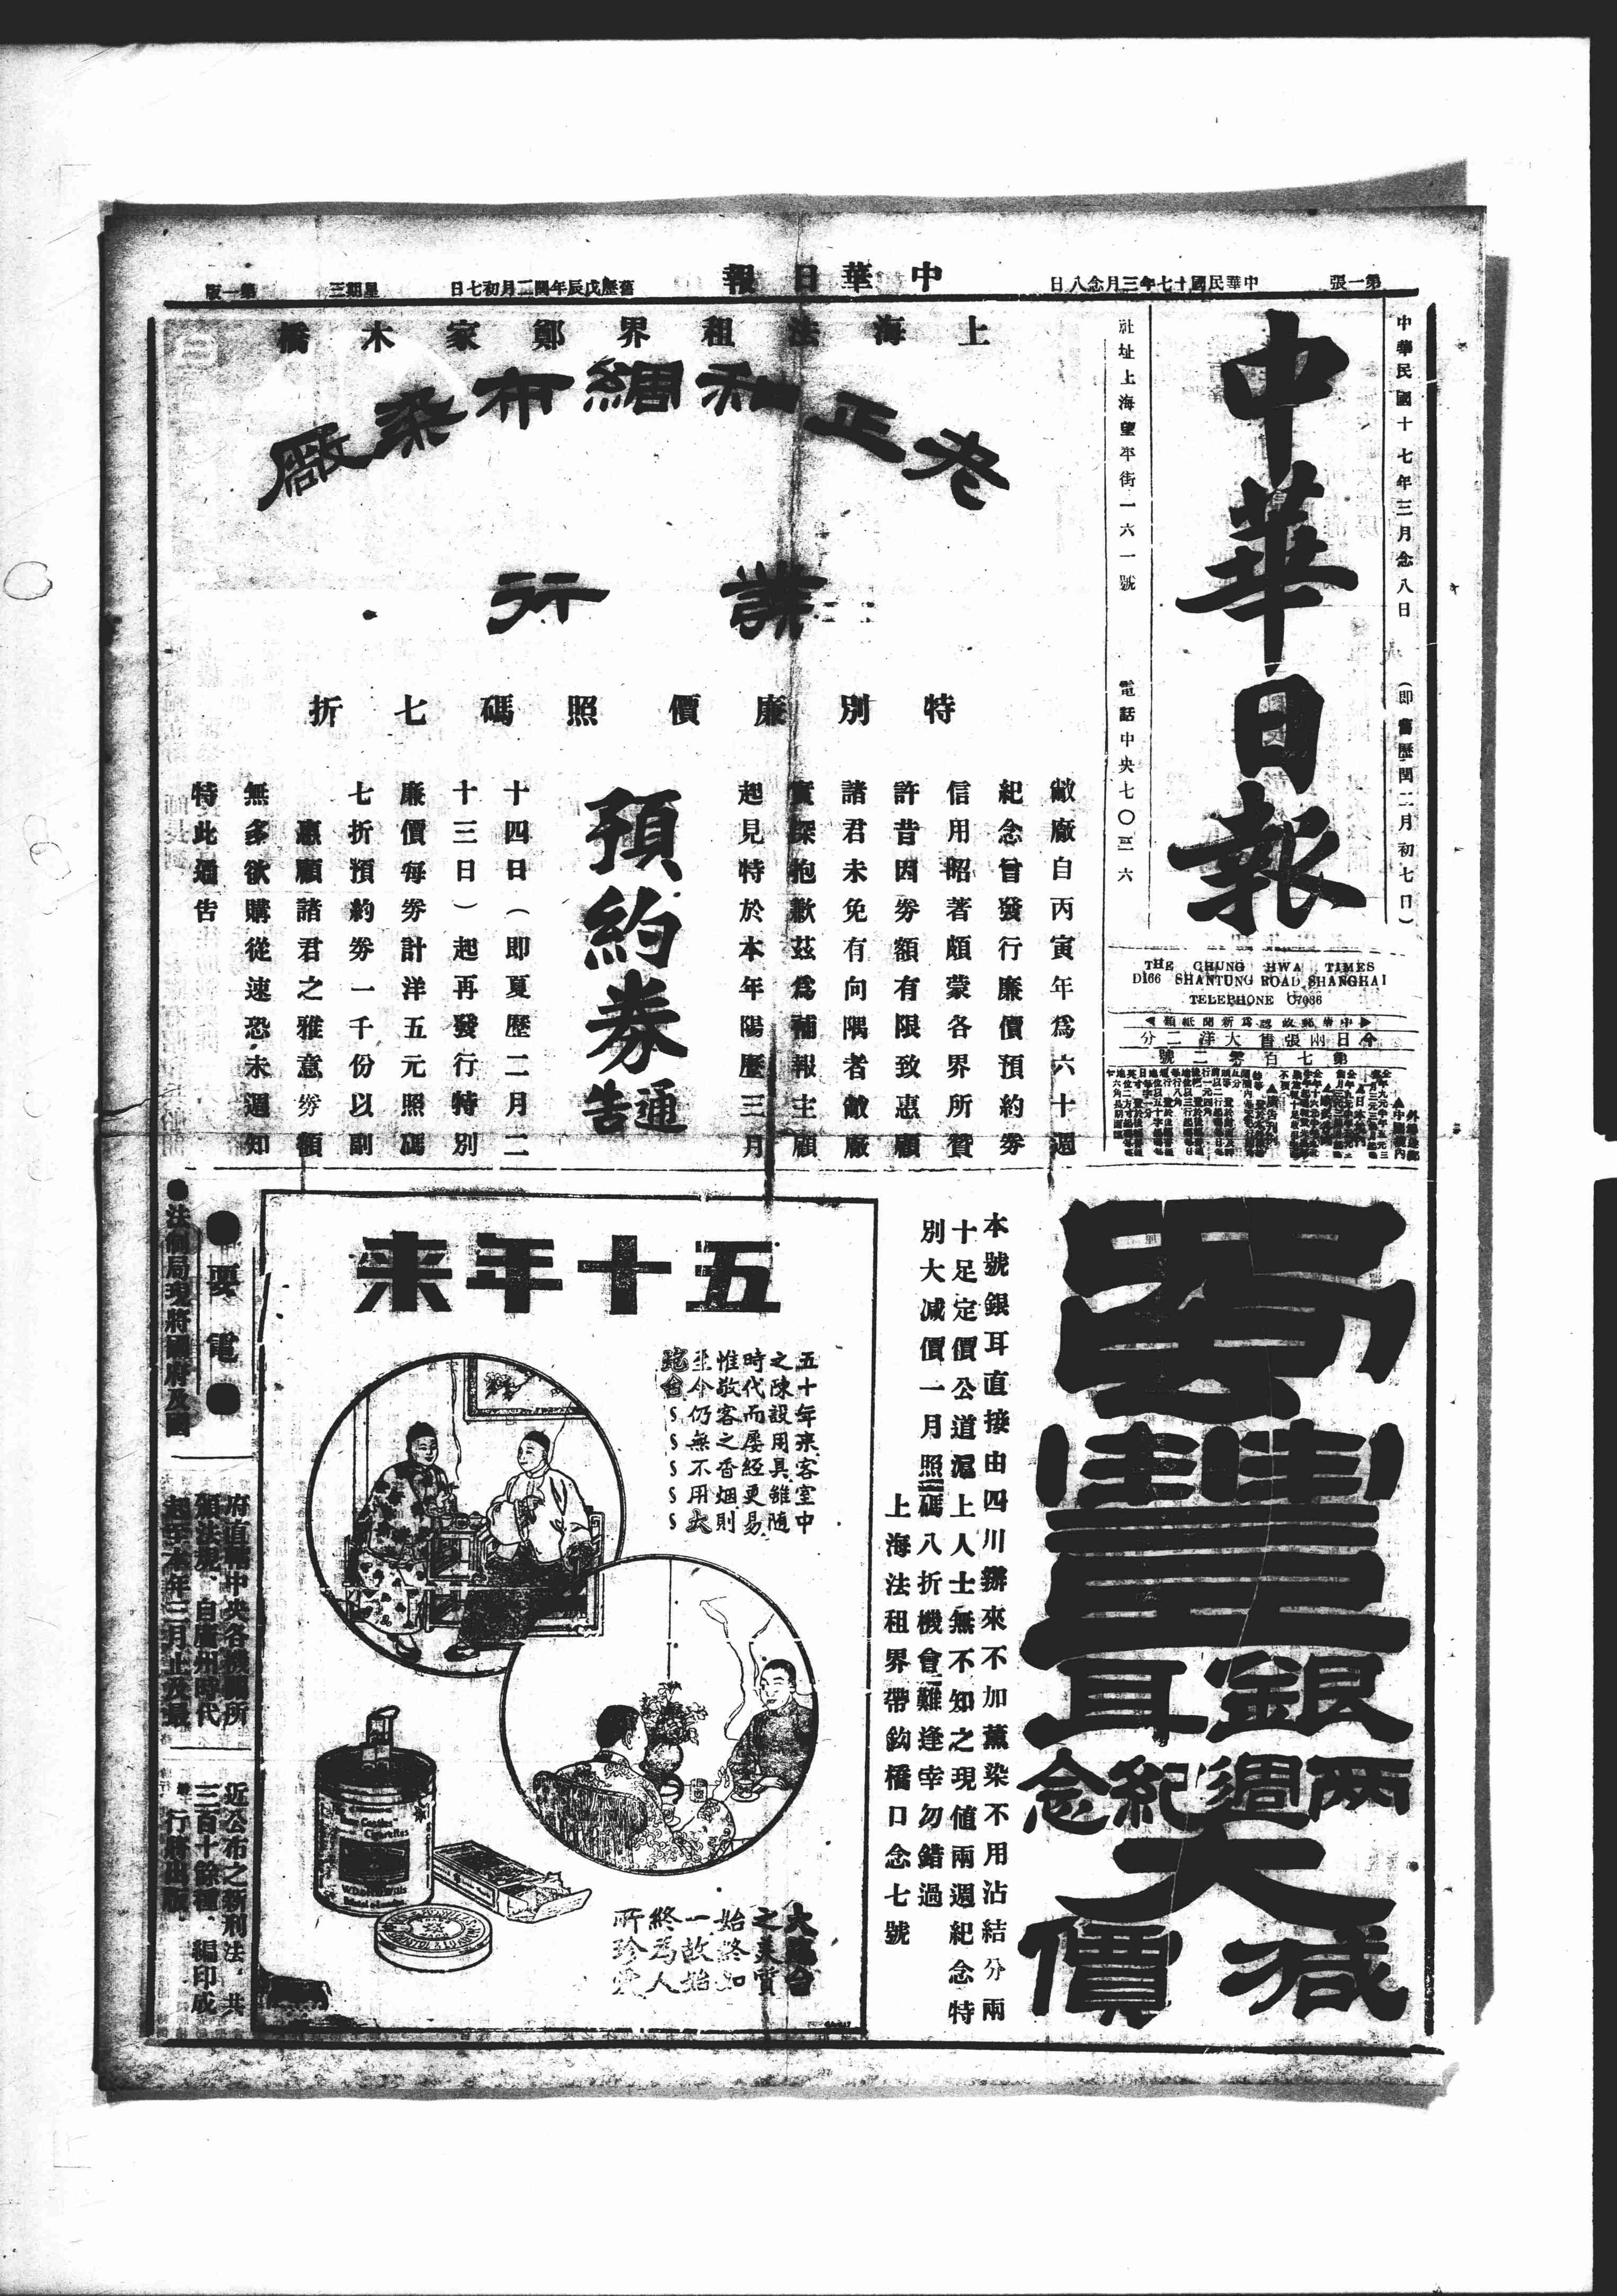 第一張
中華民國十七年三月念八日
中華日報
舊歷戊辰年閏二月初七日
星期三
第一版
中華民國十七年三月念八日
(即舊歷閏二月初七日)
中華日報
社址上海望平街一六一號
電話中央七〇三六
THE CHUNG HWA TIMES
D166 SHANTUNG ROAD, SHANGHAI
TELEPHONE C7036
中華郵政認爲新聞紙類
今日兩張售大洋二分
第七百零二號
上海法租界鄭家木橋
老正和綢布染廠
發行
特別廉價照碼七折
敝廠自丙寅年爲六十週
紀念曾發行廉價預約劵
信用昭著頗蒙各界所贊
許昔因劵額有限致惠顧
諸君未免有向隅者敝廠
實深抱歉茲爲補報主顧
起見特於本年陽歷三月
預約券
通告
十四日(即夏歷二月二
十三日)起再發行特別
廉價每劵計洋五元照碼
七折預約劵一千份以副
惠顧諸君之雅意劵額
無多欲購從速恐未週知
特此通告
銀耳
兩週紀念
大減價
本號銀耳直接由四川辦來不加薰染不用沾結分兩
十足定價公道滬上人士無不知之現值兩週紀念特
別大減價一月照碼八折機會難逢幸勿錯過
上海法租界帶鈎橋口念七號
五十年来
五十年来客室中
之陳設用具雖随
時代而屢經更易
惟敬客之香烟則
至今仍無不用大
炮台SSSSS
Castles
Cigarettes
W.D.& H.O.Wills
大炮台
之美質
始終如
一故始
終為人
所珍愛
●要電●
●法制局現將國府及國
府直轄中央各機關所
頒法規、自廣州時代
起至本年三月止及最
近公布之新刑法、共
三百十餘種、編印成
行將出版、